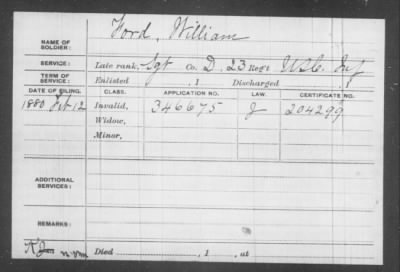 NAME OF SOLDIER: Ford, William
SERVICE: Late rank, Sgt Co. D, 23 Reg't U.S.C. Inf
TERM OF SERVICE: Enlisted , 1 Discharged , 1
DATE OF FILING. CLASS. APPLICATION NO. LAW. CERTIFICATE NO.
1880 Feb 12 Invalid, 346675 J 204299
Widow,
Minor,
ADDITIONAL SERVICES:
REMARKS:
Died , 1 , at